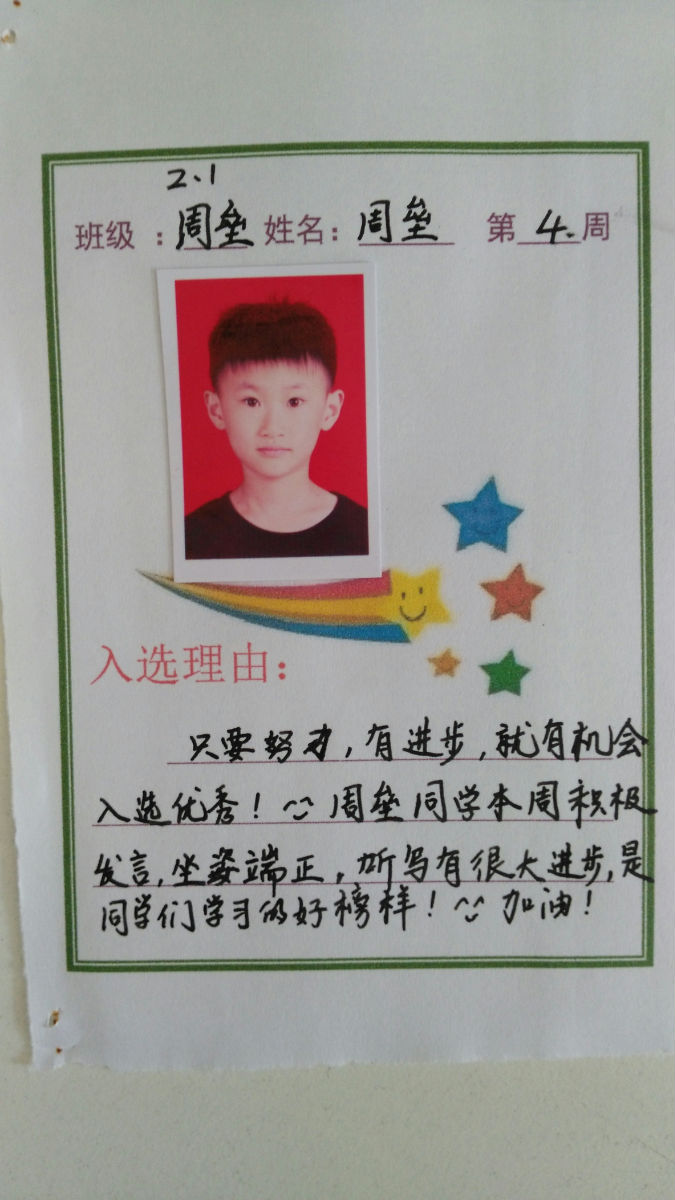 2.1
班级：周垒 姓名：周垒 第4.周
入选理由：
只要努力，有进步，就有机会
入选优秀！周垒同学本周积极
发言，坐姿端正，听写有很大进步，是
同学们学习的好榜样！加油！